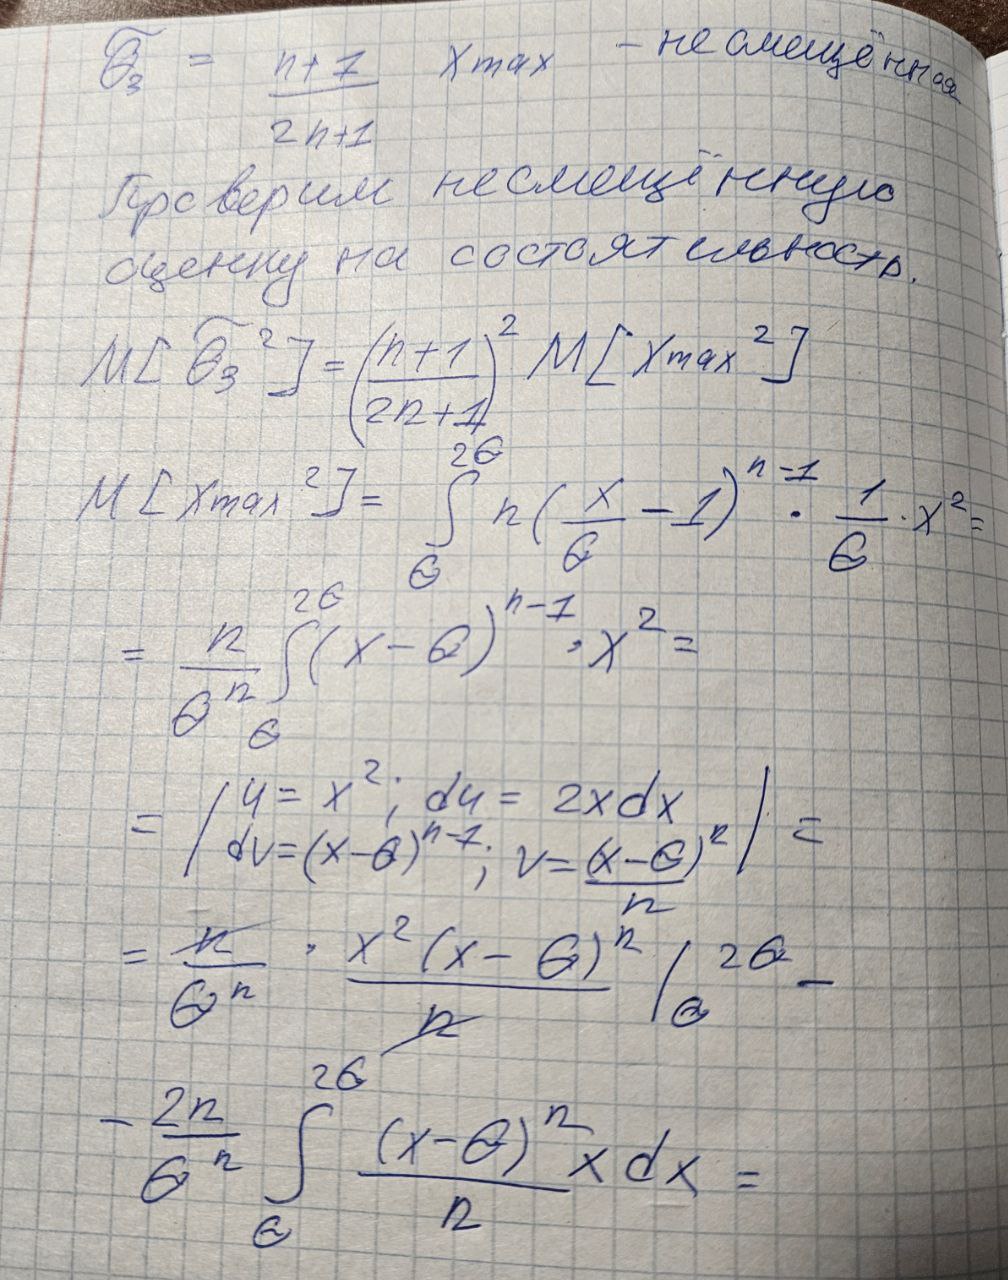 θ̃₃ = (n+1)/(2n+1) Xmax - несмещённая
Проверим несмещённую
оценку на состоятельность.
M[θ̃₃²] = ((n+1)/(2n+1))² M[Xmax²]
M[Xmax²] = ∫_θ^{2θ} n(x/θ - 1)^{n-1} · 1/θ · x² =
= n/θⁿ ∫_θ^{2θ} (x-θ)^{n-1} · x² =
= | u = x²; du = 2xdx
dv = (x-θ)^{n-1}; v = (x-θ)ⁿ/n | =
= n/θⁿ · x²(x-θ)ⁿ/n |_θ^{2θ} -
- 2n/θⁿ ∫_θ^{2θ} (x-θ)ⁿ/n xdx =